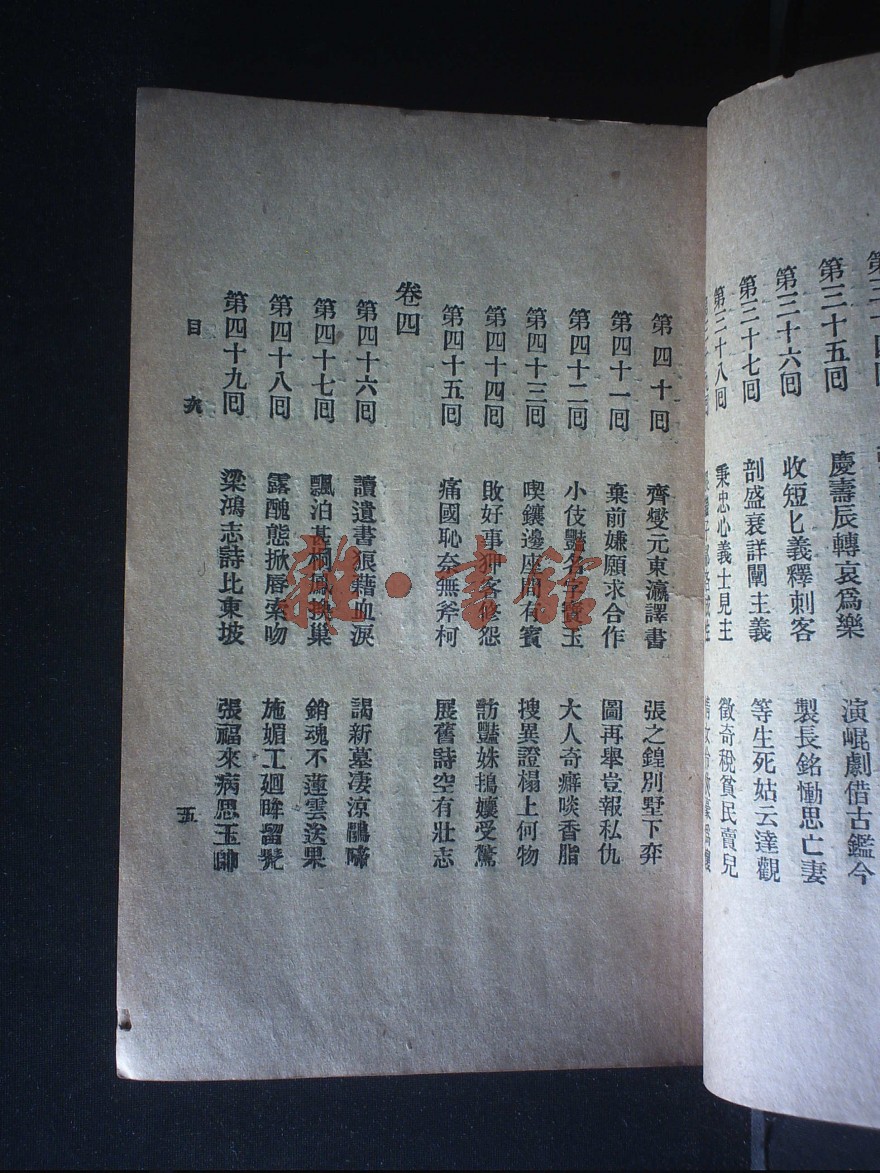 第三十五回 慶壽辰轉哀爲樂 演崐劇借古鑑今
第三十六回 收短匕義釋刺客 製長銘慟思亡妻
第三十七回 剖盛衰詳闡主義 等生死姑云達觀
第三十八回 秉忠心義士見主 徵奇稅貧民賣兒
第四十回 齊燮元東瀛譯書 張之鍠別墅下弃
第四十一回 棄前嫌願求合作 圖再舉豈報私仇
第四十二回 小伎豔名字寶玉 大人奇癖啖香脂
第四十三回 喫鑲邊座間有賓 搜異證榻上何物
第四十四回 敗好事狎客修怨 訪豔姝鴇孃受驚
第四十五回 痛國恥奈無斧柯 展舊詩空有壯志
卷四
第四十六回 讀遺書狼藉血淚 謁新墓凄涼鵑啼
第四十七回 飄泊甚桐鳳換巢 銷魂不蓮雲送果
第四十八回 露醜態掀唇索吻 施媚工廻眸留髠
第四十九回 梁鴻志詩比東坡 張福來病思玉帥
目 次
五
雜·書館